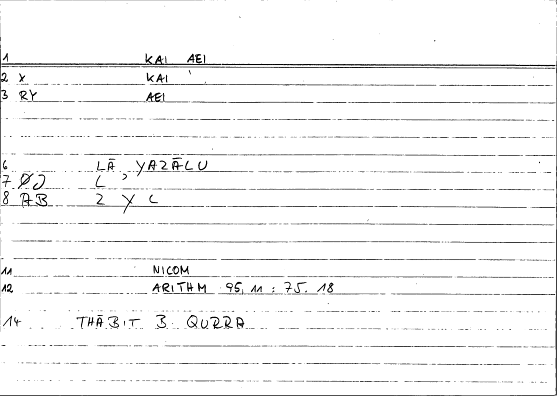 1 KAI AEI
2 X KAI
3 RY AEI
6 LĀ YAZĀLU
7 ØJ L
8 AB Z Y L
11 NICOM
12 ARITHM 95, 11 : 75. 18
14 THĀBIT B. QURRA